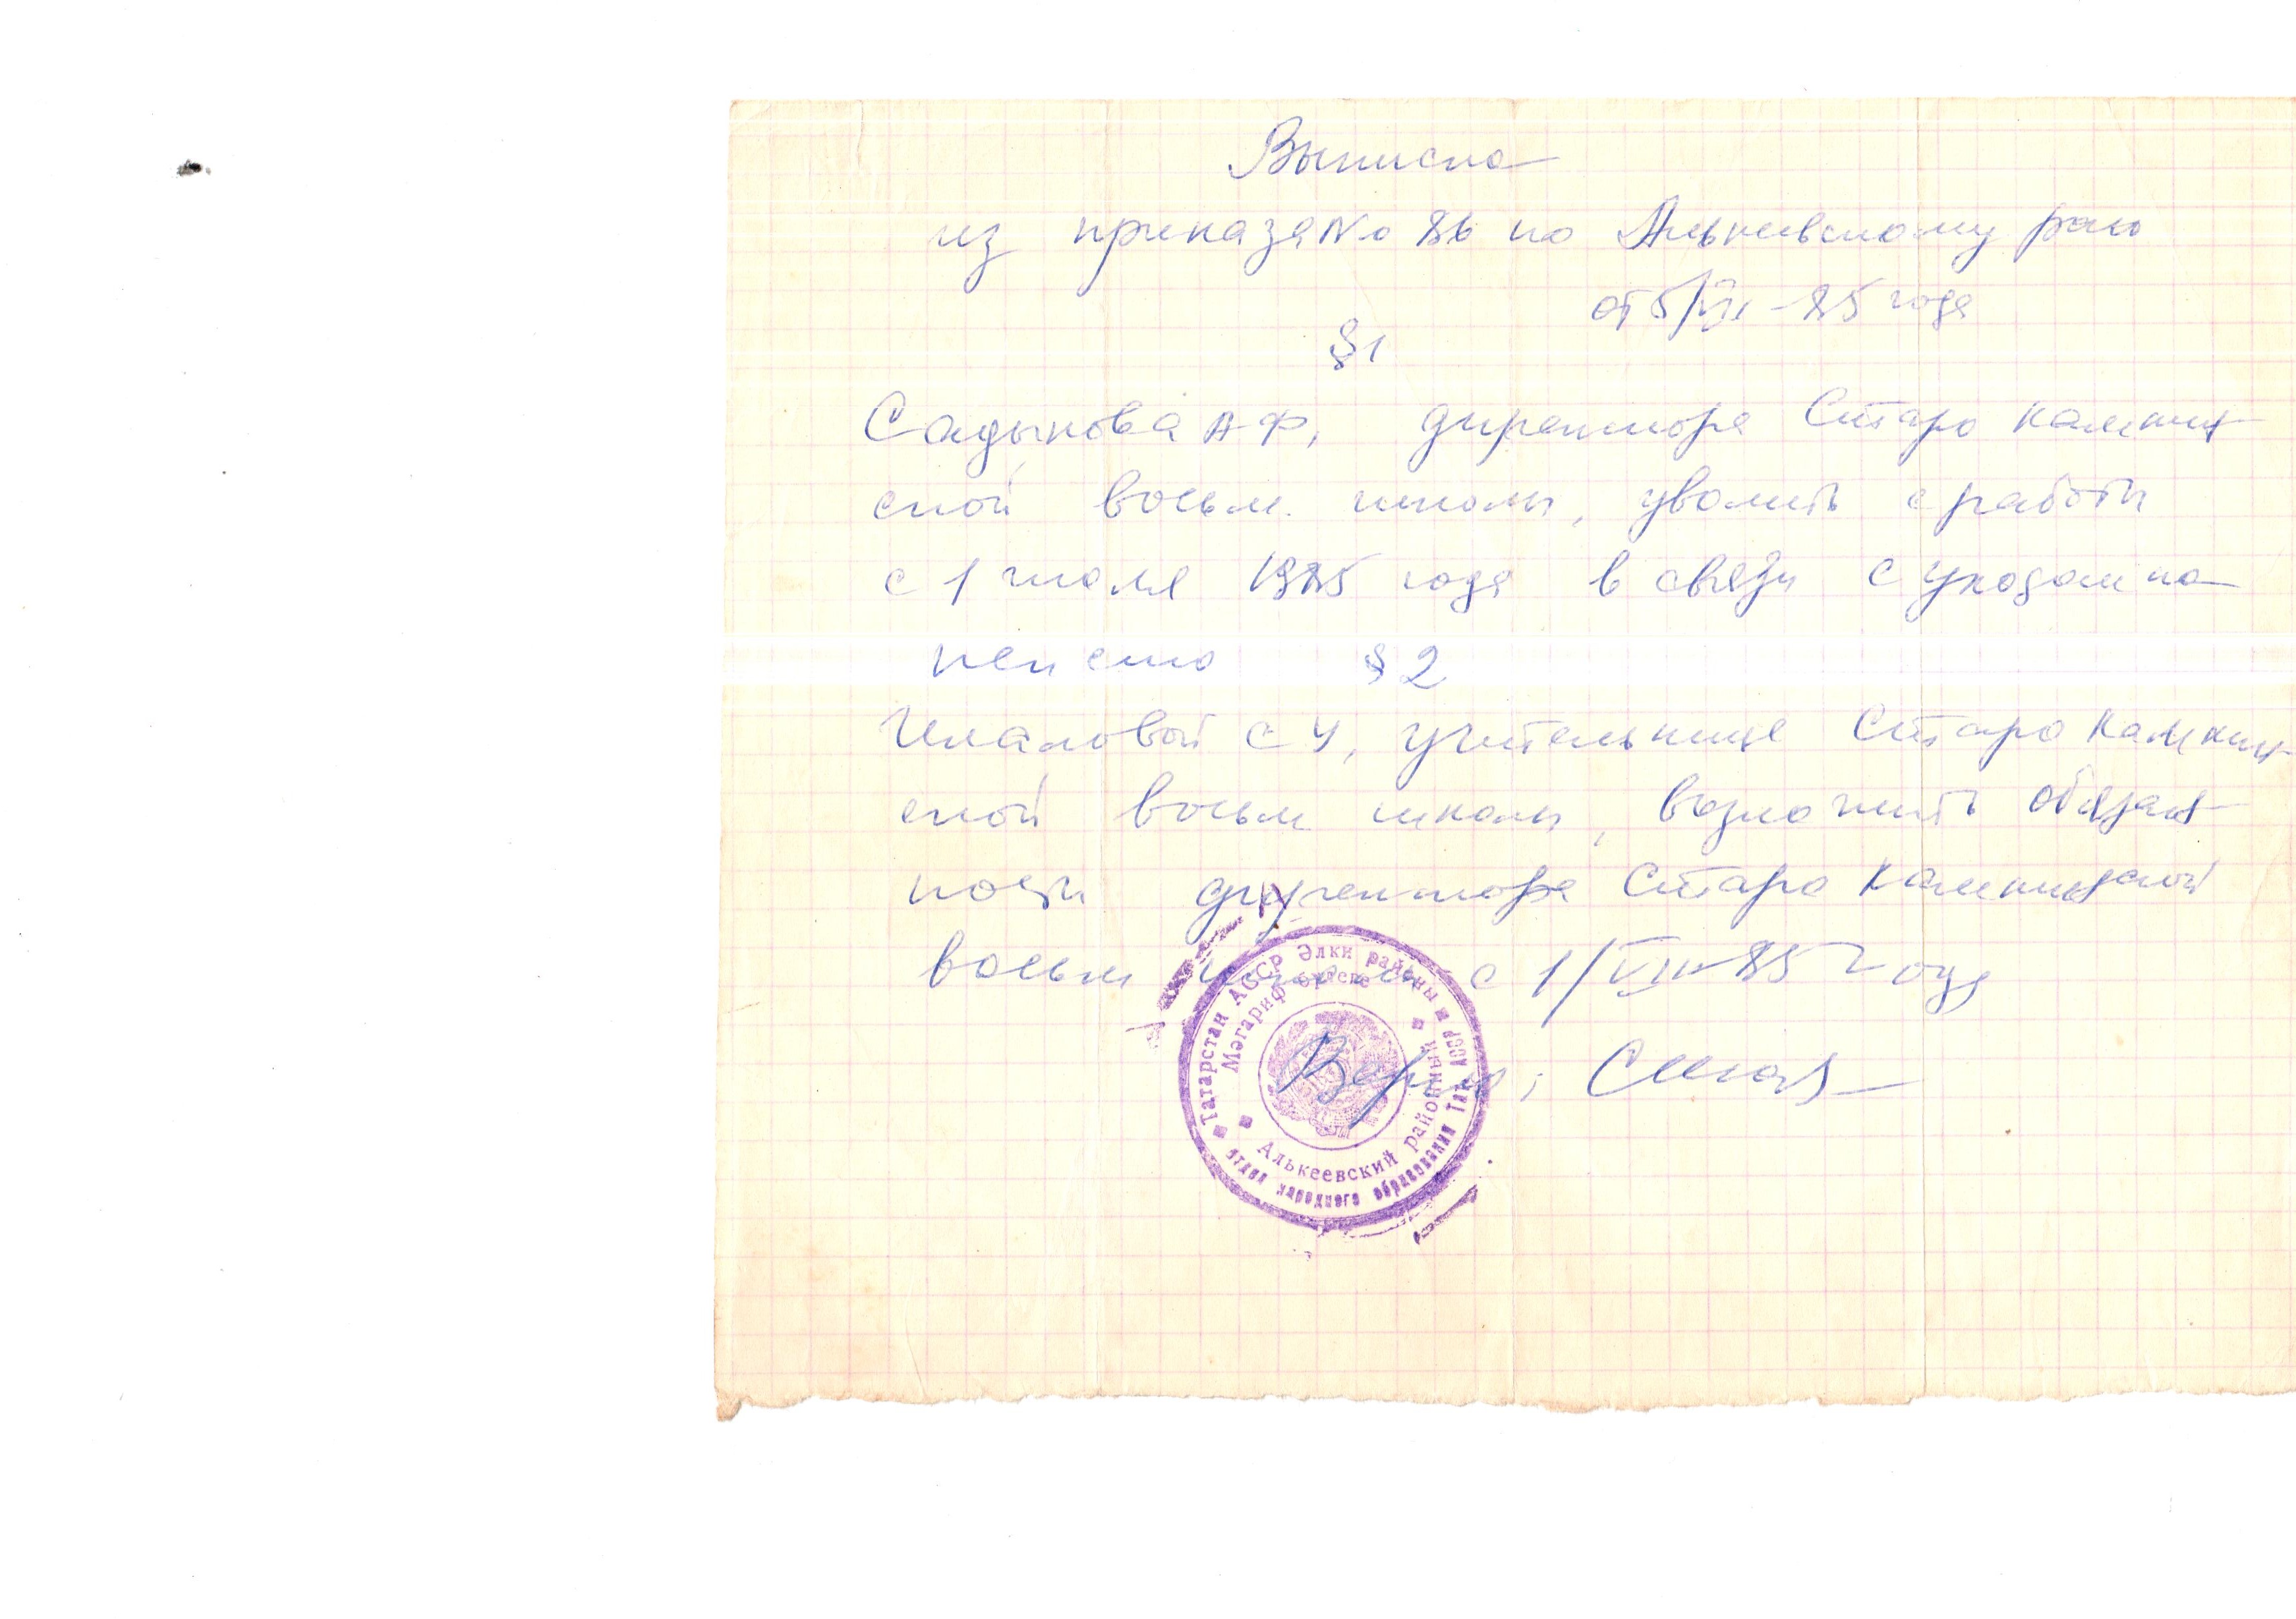 Выписка
из приказа No 86 по Алькеевскому роно
от 5/VII-85 года
§1
Садыкова А Ф, директора Старо Камкин
ской восьм. школы, уволить с работы
с 1 июля 1985 года в связи с уходом на
пенсию §2
С У, учительнице Старо Камкин
ской восьм школы, возложить обязан
ности директора Старо Камкинской
восьм школы с 1/VII-85 года
Верно:
Татарстан АССР Әлки районы
Мәгариф бүлеге
Алькеевский районный
отдел народного образования Тат. АССР